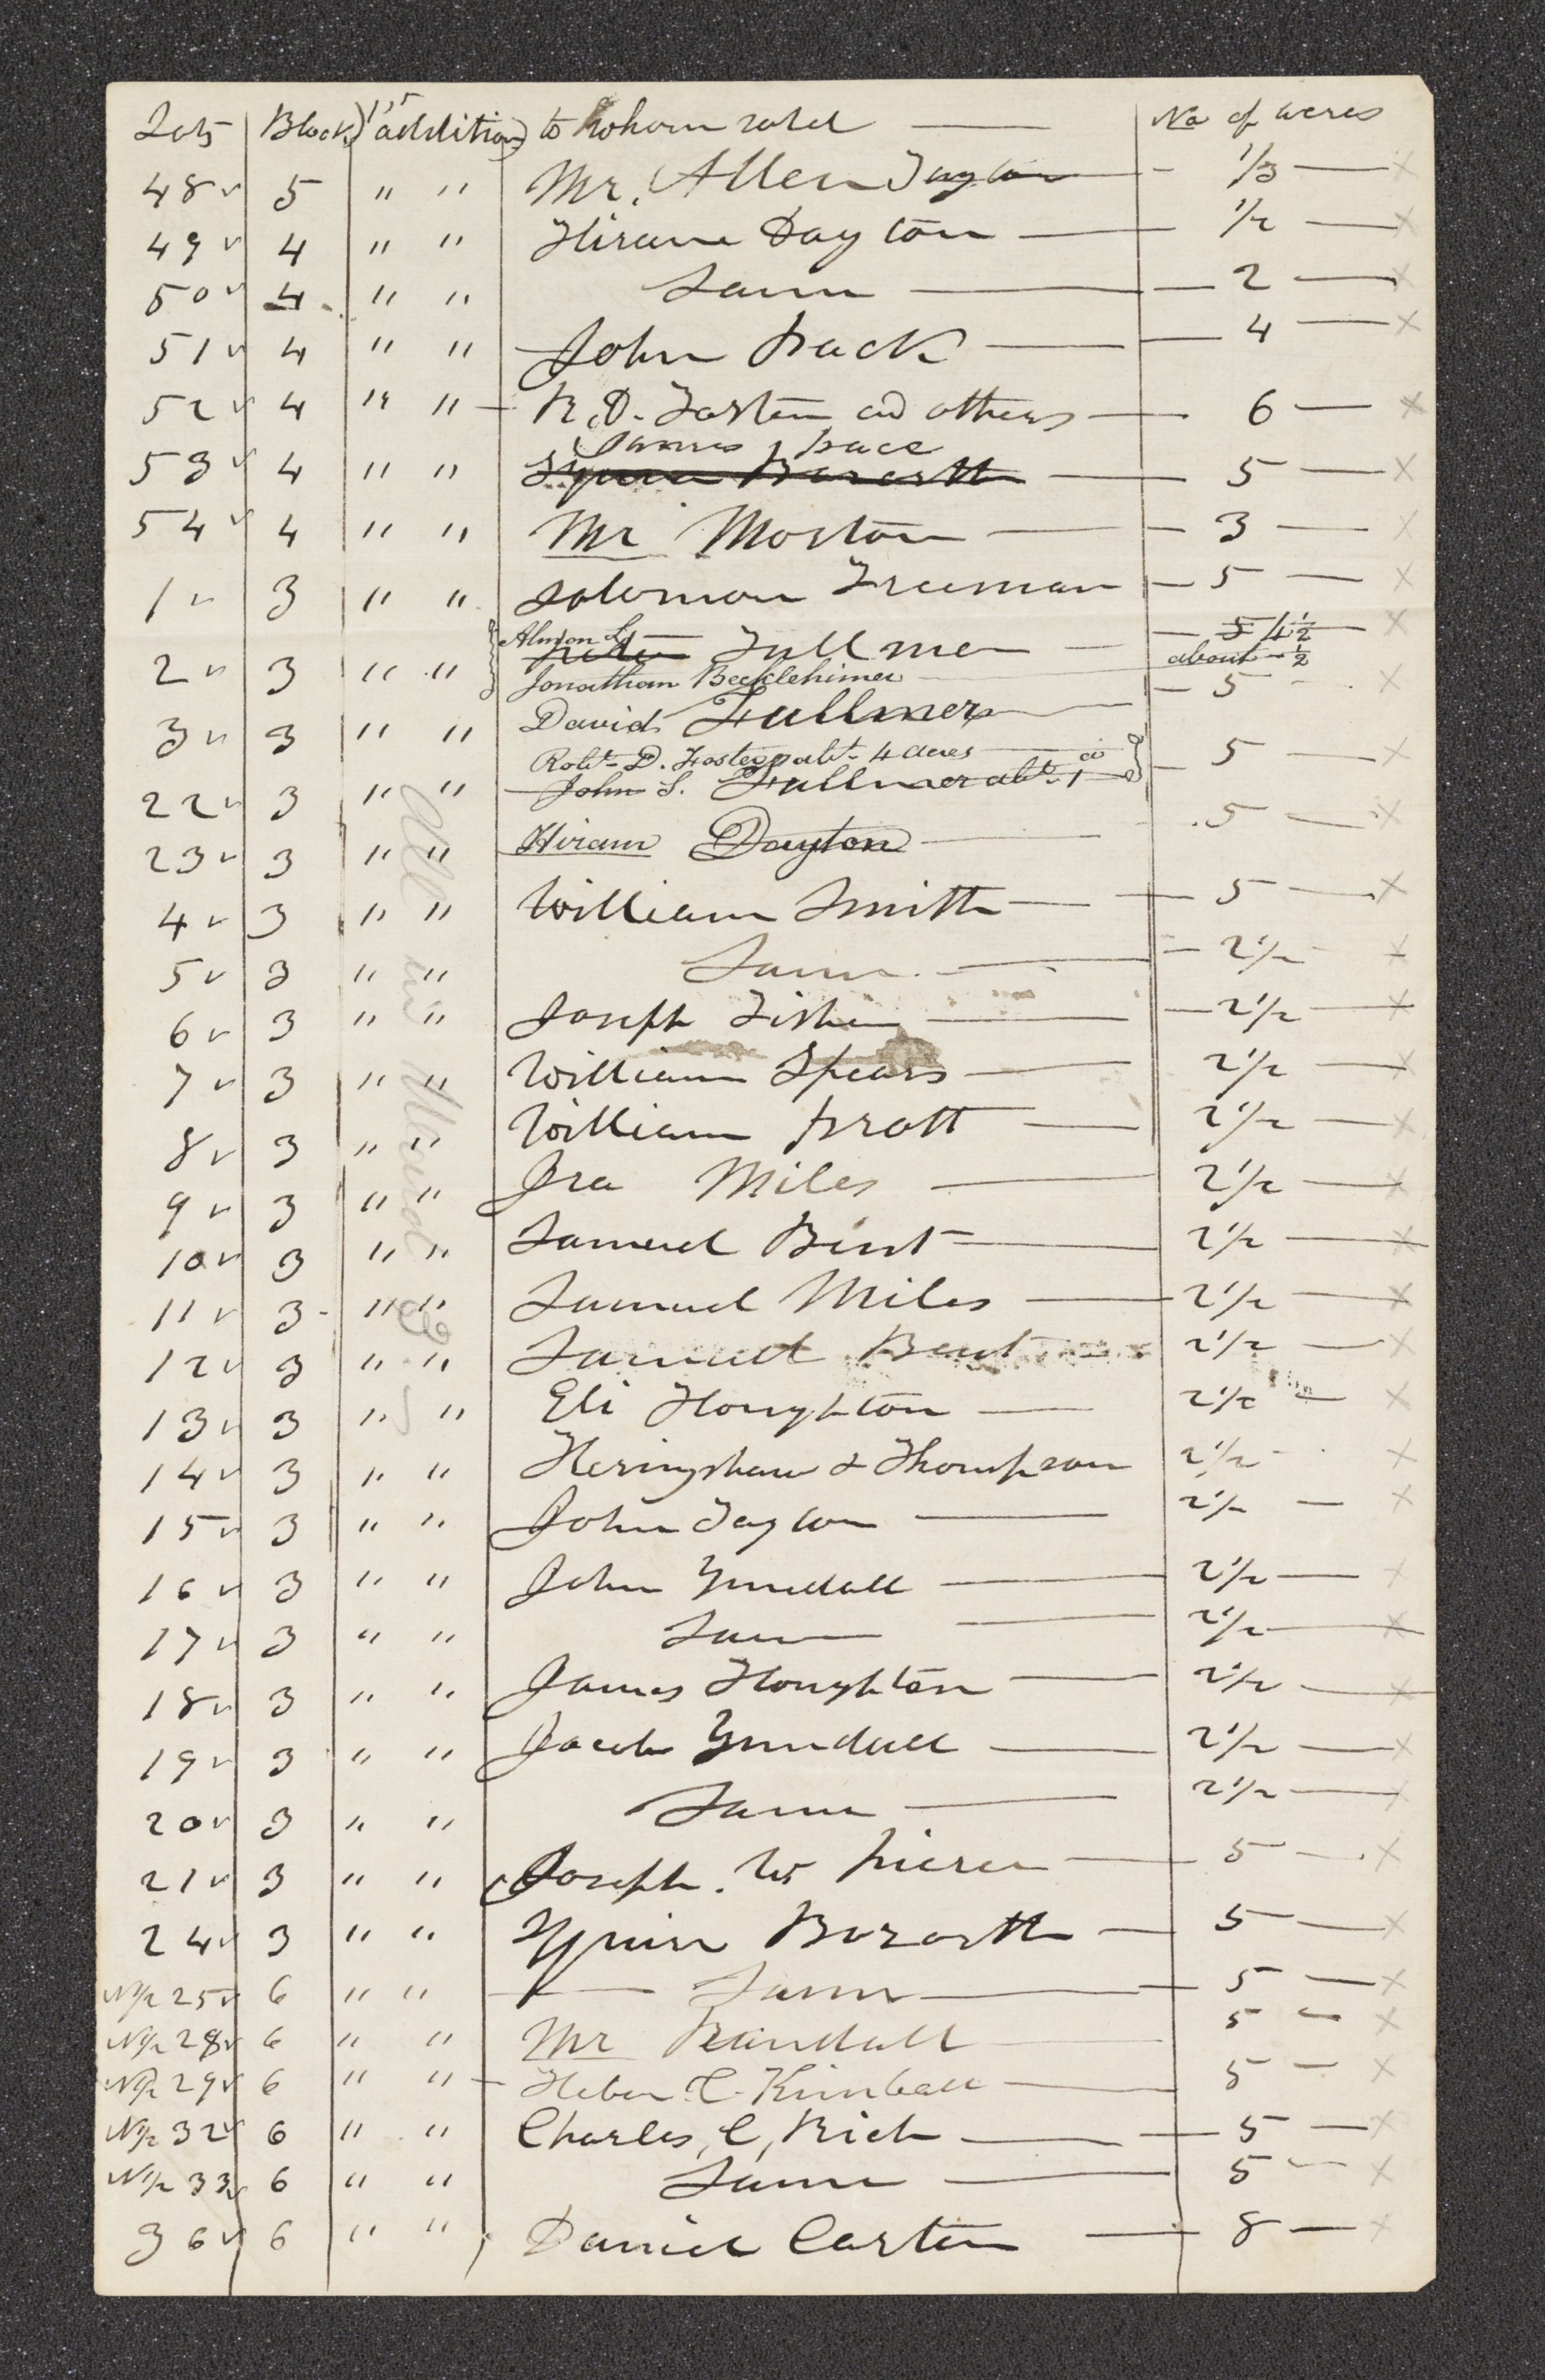 Lots Block 1st addition to whom sold — No of acres
48 ✓ 5 " " Mr. Allen Taylor — 1/3 — x
49 ✓ 4 " " Hiram Dayton — 1/2 — x
50 ✓ 4 " " Same — 2 — x
51 ✓ 4 " " John Pack — 4 — x
52 ✓ 4 " " R. D. Foster and others — 6 — x
James Pace
53 ✓ 4 " " Squire Bozorth — 5 — x
54 ✓ 4 " " Mr Morton — 3 — x
1 ✓ 3 " " Solomon Freeman — 5 — x
Almon L. — 5 4 1/2 x
2 ✓ 3 " " Fullmer — about 1/2
Jonathan Becklehimer — 5 — x
3 ✓ 3 " " David Fullmer —
Robt. D. Foster abt. 4 acres — 5 — x
22 ✓ 3 " " John S. Fullmer abt. 1 do
23 ✓ 3 " " Hiram Dayton — 5 — x
4 ✓ 3 " " William Smith — 5 — x
5 ✓ 3 " " Same — 2 1/2 x
6 ✓ 3 " " Joseph Fisher — 2 1/2 — x
7 ✓ 3 " " William Spears — 2 1/2 — x
8 ✓ 3 " " William Pratt — 2 1/2 — x
9 ✓ 3 " " Ira Miles — 2 1/2 — x
10 ✓ 3 " " Samuel Bent — 2 1/2 — x
11 ✓ 3 " " Samuel Miles — 2 1/2 — x
12 ✓ 3 " " Samuel Bent — 2 1/2 — x
13 ✓ 3 " " Eli Houghton — 2 1/2 — x
14 ✓ 3 " " Heringshaw & Thompson 2 1/2 x
15 ✓ 3 " " John Taylor — 2 1/2 — x
16 ✓ 3 " " John Yundall — 2 1/2 — x
17 ✓ 3 " " Same — 2 1/2 — x
18 ✓ 3 " " James Houghton — 2 1/2 — x
19 ✓ 3 " " Jacob Yundall — 2 1/2 — x
20 ✓ 3 " " Same — 2 1/2 — x
21 ✓ 3 " " Joseph. W Pierce — 5 — x
24 ✓ 3 " " Squire Bozorth — 5 — x
N 1/2 25 ✓ 6 " " — Same — 5 — x
N 1/2 28 ✓ 6 " " Mr Randall — 5 — x
N 1/2 29 ✓ 6 " " Heber C. Kimball — 5 — x
N 1/2 32 ✓ 6 " " Charles, C, Rich — 5 — x
N 1/2 33 ✓ 6 " " Same — 5 — x
36 ✓ 6 " " Daniel Carter — 8 — x
All in